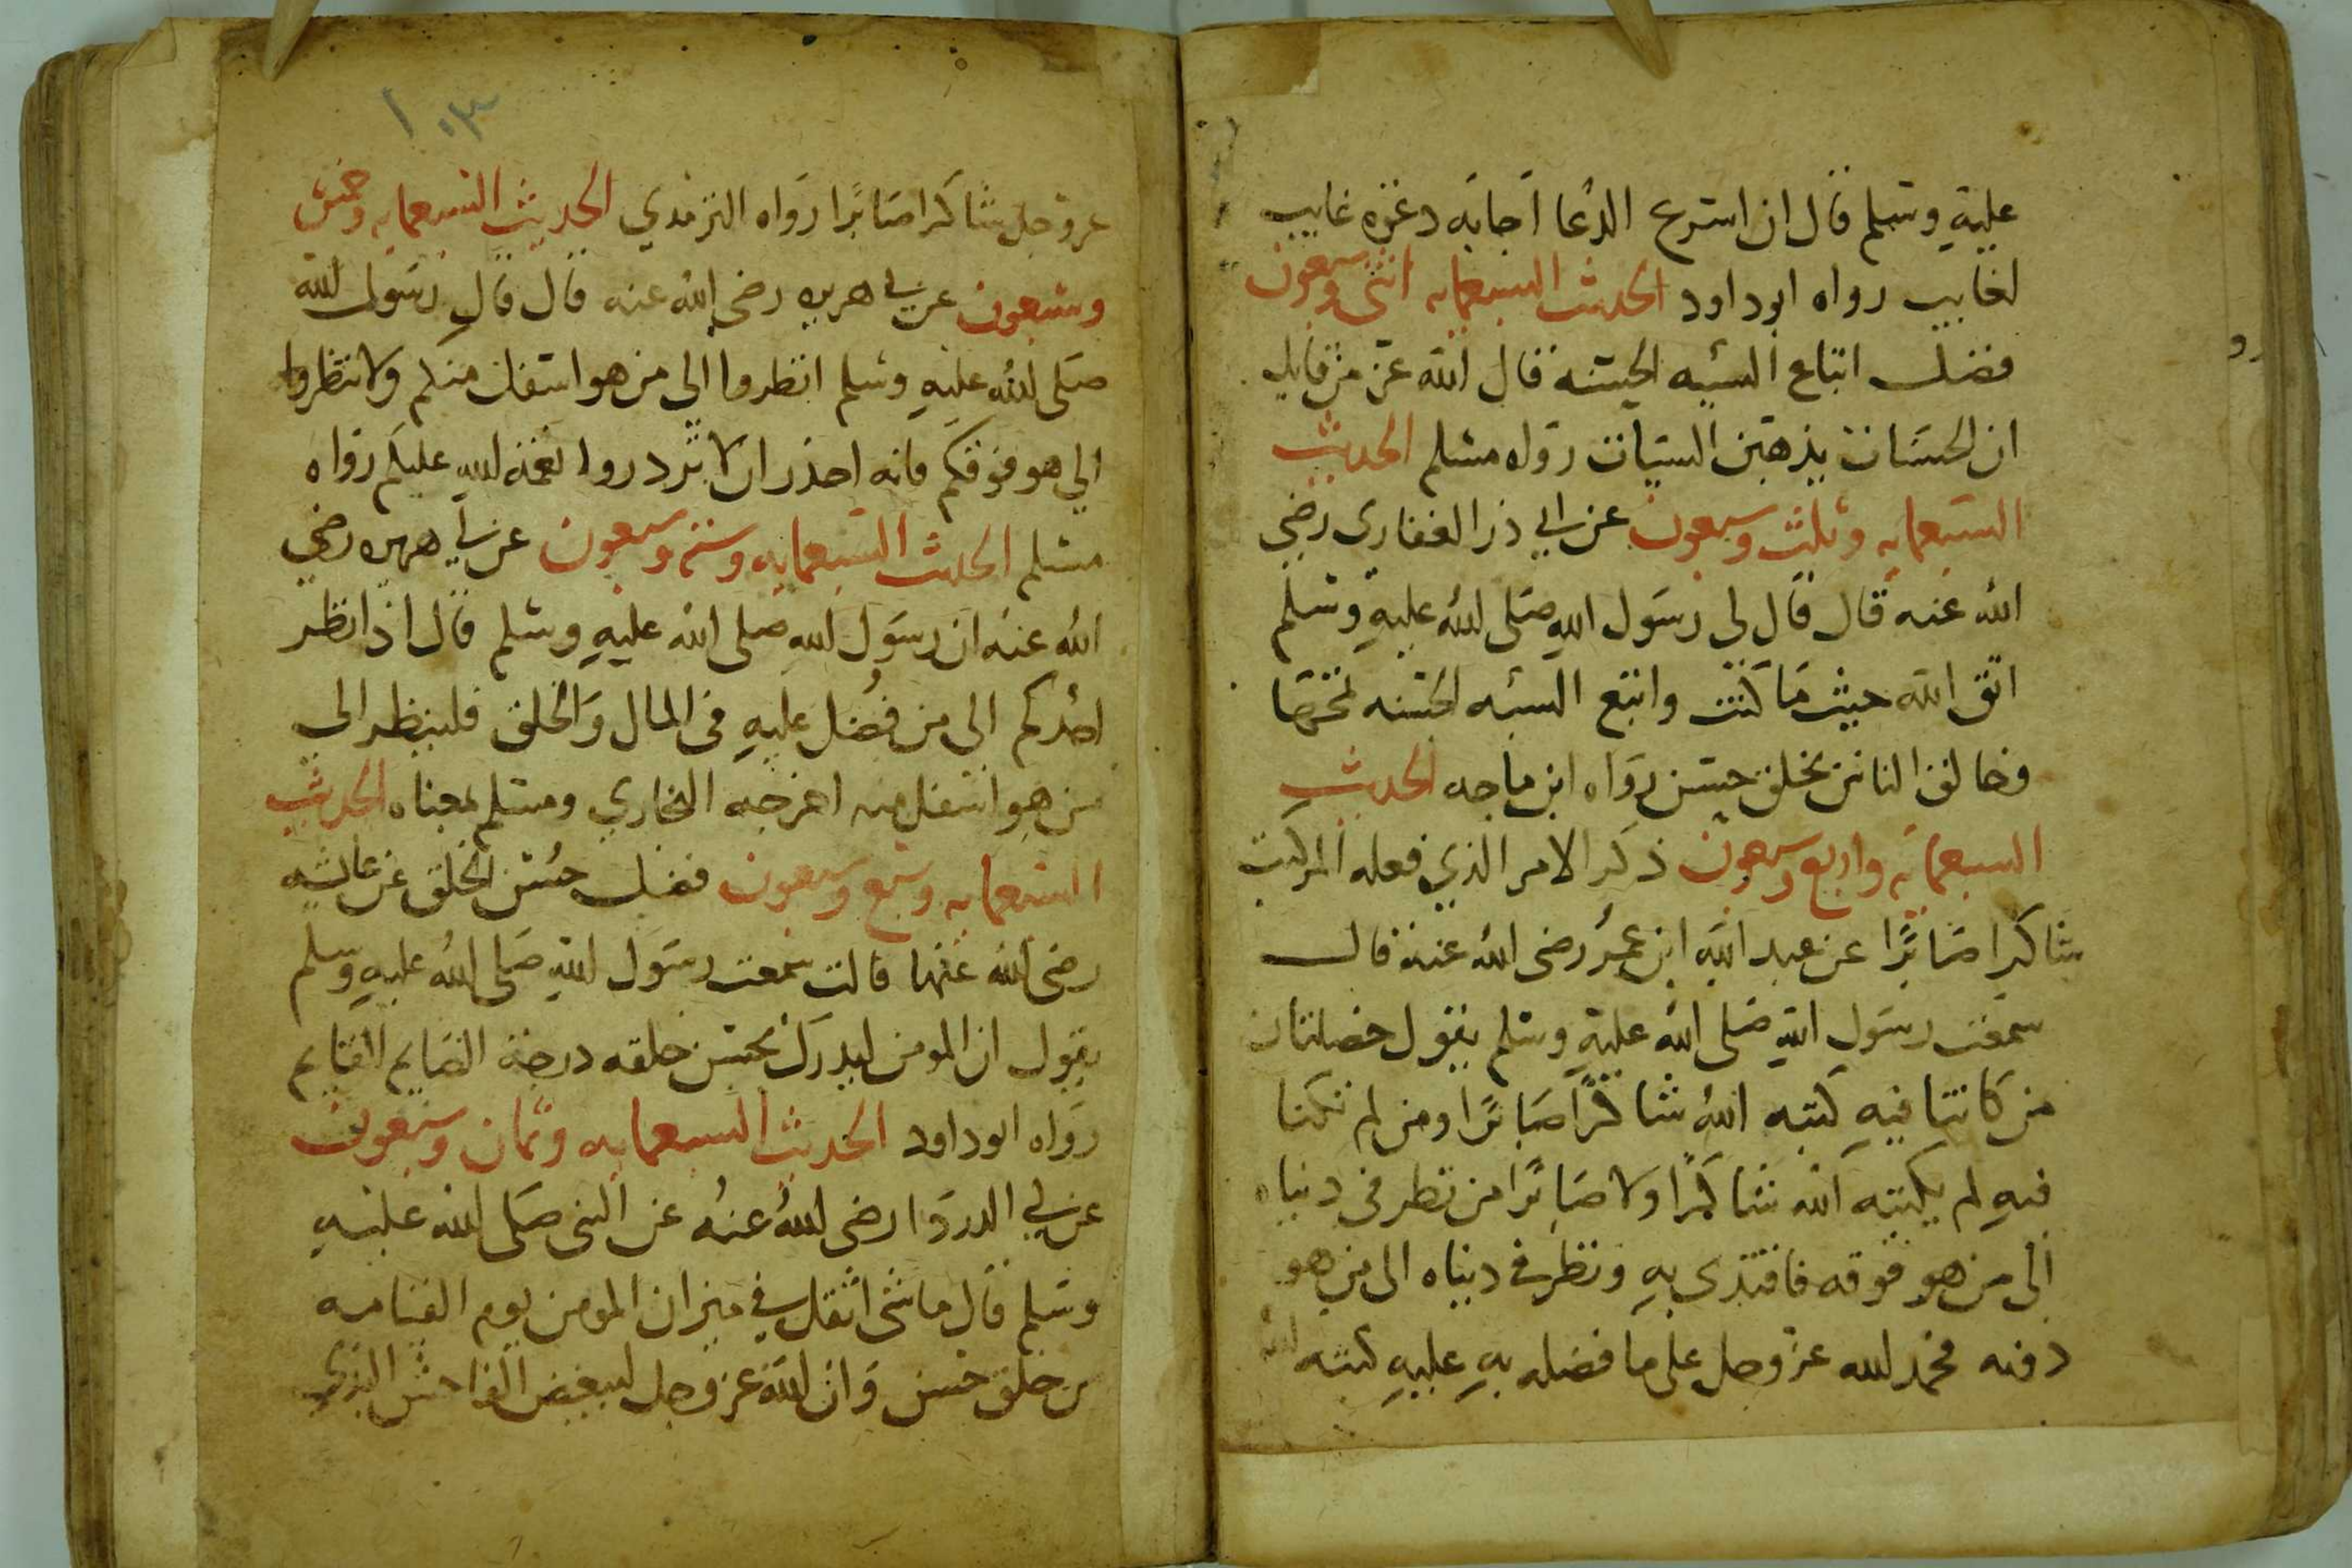 عليه وسلم قال ان اسرع الدعا اجابه دعوه غايب
لغايب رواه ابو داود الحديث السبعمايه اثنى وسبعون
فضل اتباع السيه الحسنه قال الله عز من قايل
ان الحسنات يذهبن السيات رواه مسلم الحديث
السبعمايه وثلث وسبعون عن ابي ذر الغفاري رضي
الله عنه قال قال لى رسول الله صلى الله عليه وسلم
اتق الله حيث ما كنت واتبع السيه الحسنه تمحها
وخالق الناس بخلق حسن رواه ابن ماجه الحديث
السبعمايه واربع وسبعون ذكر الامر الذي فعله المر كتب
شاكرا صابرا عن عبد الله ابن عمر رضى الله عنه قال
سمعت رسول الله صلى الله عليه وسلم يقول خصلتان
من كانتا فيه كتبه الله شاكرا صابرا ومن لم تكنا
فيه لم يكتبه الله شاكرا ولا صابرا من نظر فى دنياه
الى من هو فوقه فاقتدى به ونظر فى دنياه الى من هو
دونه فحمد الله عز وجل على ما فضله به عليه كتبه الله
١٠٣
عز وجل شاكرا صابرا رواه الترمدي الحديث السبعمايه وخمس
وسبعون عن ابي هريره رضى الله عنه قال قال رسول الله
صلى الله عليه وسلم انظروا الى من هو اسفل منكم ولا تنظروا
الي هو فوقكم فانه احذر ان لا تزدروا نعمه الله عليكم رواه
مسلم الحديث السبعمايه وسته وسبعون عن ابي هريره رضي
الله عنه ان رسول الله صلى الله عليه وسلم قال اذا نظر
احدكم الى من فُضل عليه فى المال والخلق فلينظر الى
من هو اسفل منه اخرجه البخاري ومسلم بمعناه الحديث
السبعمايه وسبع وسبعون فضل حسن الخلق عن عايشه
رضى الله عنها قالت سمعت رسول الله صلى الله عليه وسلم
يقول ان المومن ليدرك بحسن خلقه درجة الصايم القايم
رواه ابو داود الحديث السبعمايه وثمان وسبعون
عن ابي الدردا رضى الله عنه عن النبى صلى الله عليه
وسلم قال ما شى اثقل في ميزان المومن يوم القيامه
من خلق حسن وان الله عز وجل ليبغض الفاحش البذي